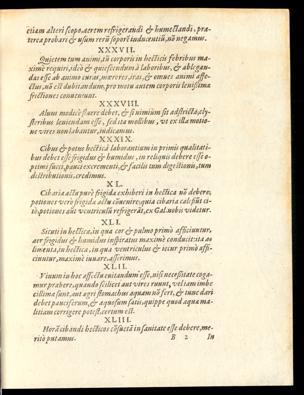 etiam alteri scopo, aerem refrigerandi & humectandi, præ-
terea probare & usum rerū soporē inducentiū, nō negamus.
XXXVII.
Quietem tum animi, tū corporis in hecticis febribus ma-
ximè requiri, ideò & quiescendum à laboribus, & ablegan-
das esse ab animo curas, mœrores, iras, & omnes animi affe-
ctus, nō est dubitandum, pro motu autem corporis leuissima
frictiones conueniunt.
XXXVIII.
Aluus modicè fluere debet, & si nimium sit adstricta, cly-
steribus leuicandum esse, sed ita mollibus, ut ex illa motio-
ne vires non labantur, iudicamus.
XXXIX.
Cibus & potus hecticâ laborantium in primis qualitati-
bus debet esse frigidus & humidus, in reliquis debere esse o-
ptimi succi, pauci excrementi, & facilis tum digestionis, tum
distributionis, credimus.
XL.
Cibaria actu purè frigida exhiberi in hectica nō debere,
potiones verò frigida actu cōuenire, quia cibaria calefiūt ci-
tò, potiones aūt ventriculū refrigerāt, ex Gal. nobis videtur.
XLI.
Sicuti in hectica, in qua cor & pulmo primò afficiuntur,
aer frigidus & humidus inspiratus maximè conducit: ita a-
limenta, in hectica, in qua ventriculus & iecur primò affi-
ciuntur, maximè iuuare, asserimus.
XLII.
Vinum in hoc affectu euitandum esse, nisi necessitate coga-
mur præbere, quando scilicet aut vires ruunt, vel tam imbe-
cillima sunt, aut agri stomachus aquam nō fert, & tunc dari
debet pauciferum, & aquosum satis, quippe quod aqua ma-
litiam corrigere potest, certum est.
XLIII.
Horā cibandi hecticos cōsuetā in sanitate esse debere, me-
ritò putamus.
B 2 In